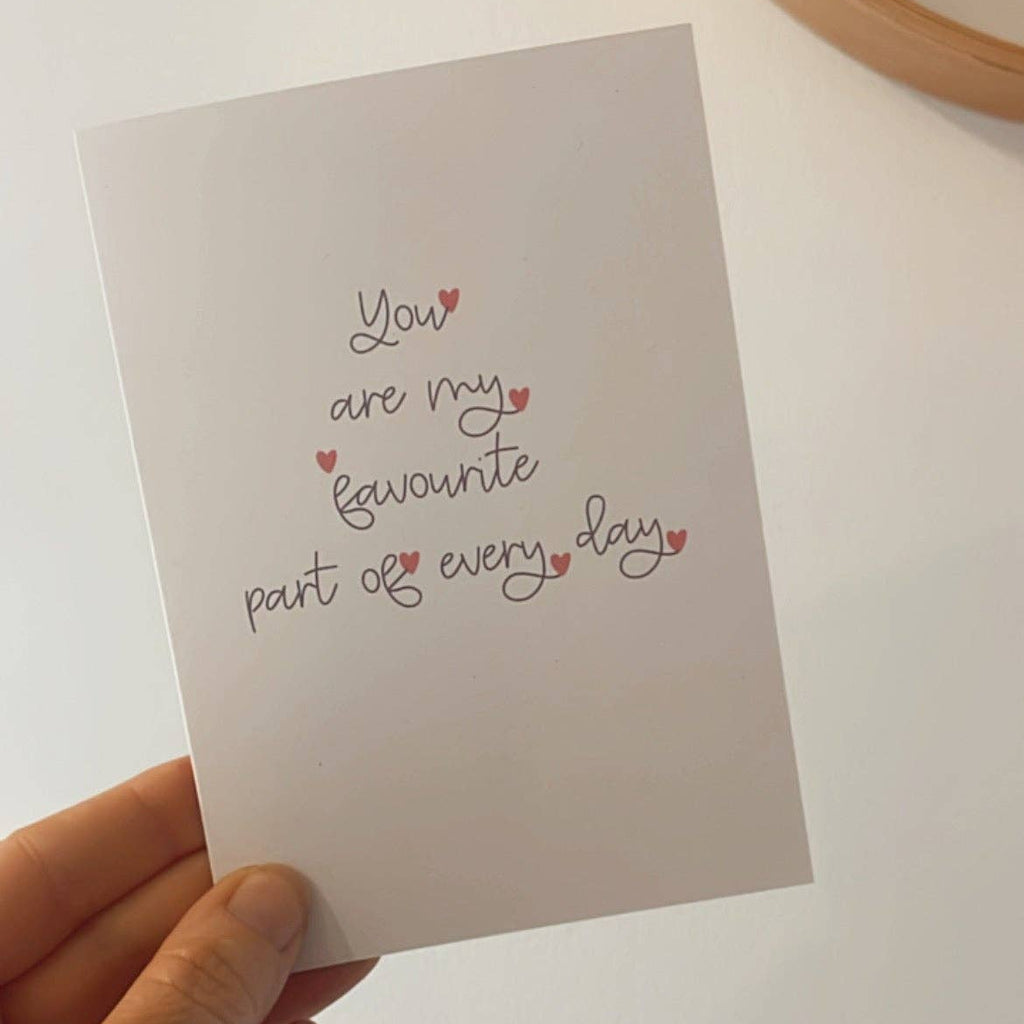 You
are my
favourite
part of every day